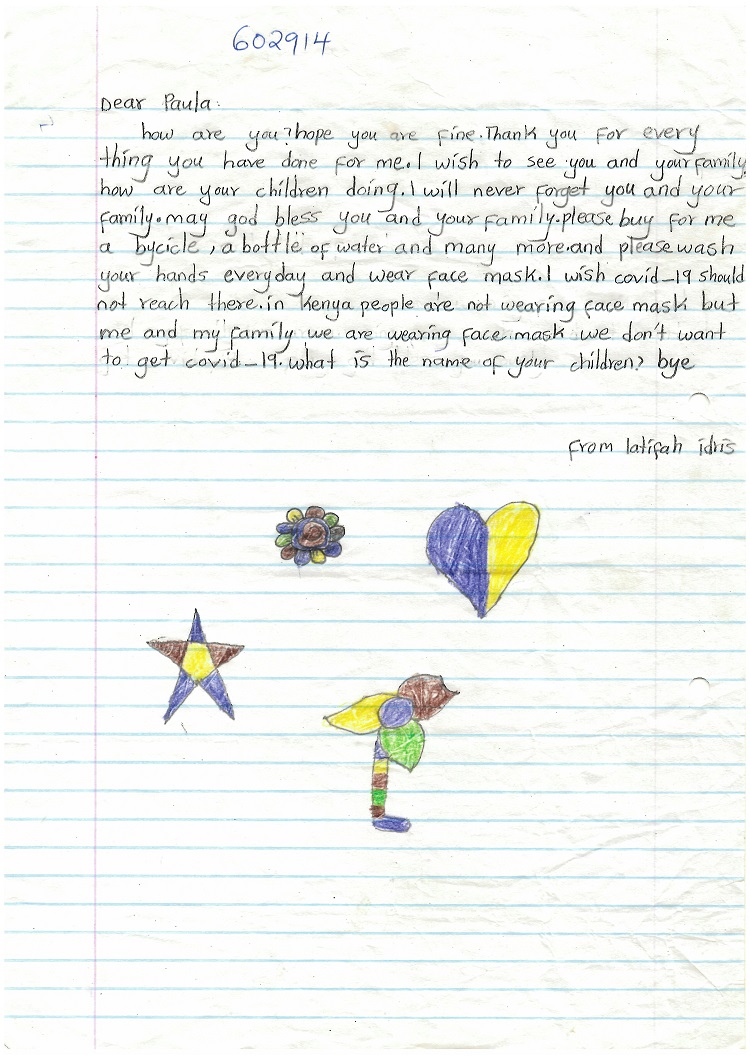 602914
Dear Paula:
how are you? hope you are fine. Thank you for every
thing you have done for me. I wish to see you and your family.
how are your children doing. I will never forget you and your
family. may god bless you and your family. please buy for me
a bycicle, a bottle of water and many more. and please wash
your hands everyday and wear face mask. I wish covid-19 should
not reach there. in Kenya people are not wearing face mask but
me and my family we are wearing face mask we don't want
to get covid-19. what is the name of your children? bye
from latifah idris